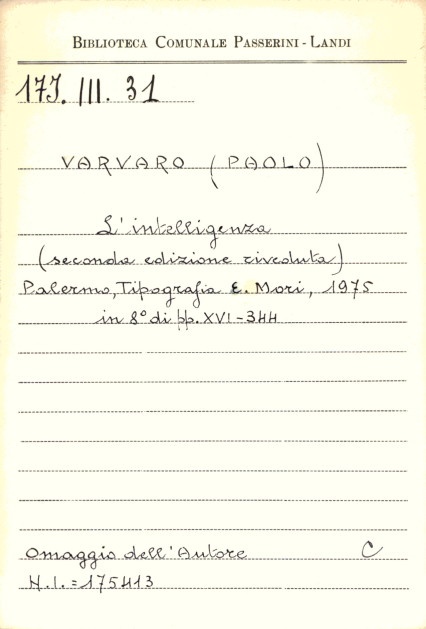 BIBLIOTECA COMUNALE PASSERINI - LANDI
17J. III. 31
VARVARO (PAOLO)
L'intelligenza
(seconda edizione riveduta)
Palermo, Tipografia E. Mori, 1975
in 8° di pp. XVI-344
Omaggio dell'Autore C
N.I. = 175413